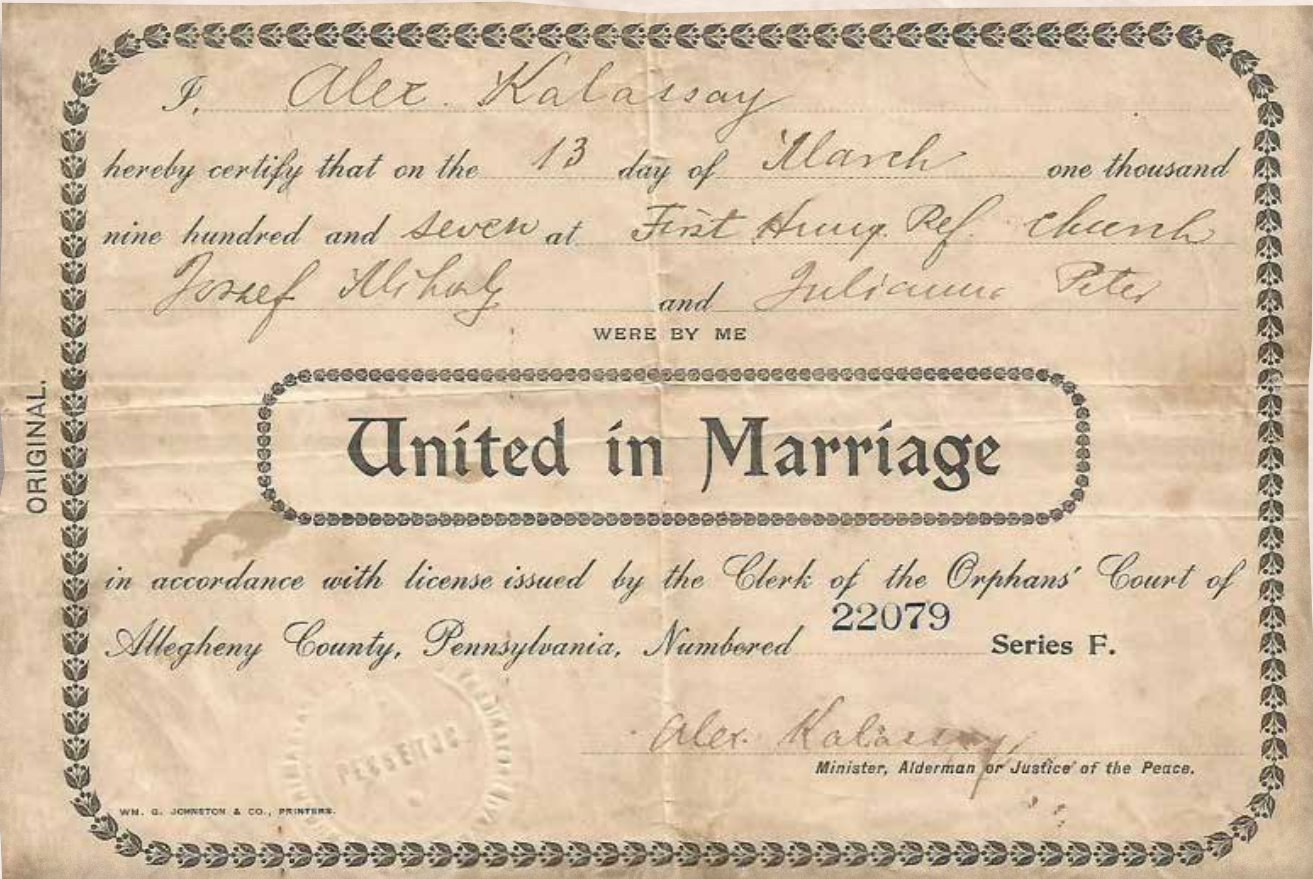 I, Alex. Kalassay
hereby certify that on the 13 day of March one thousand
nine hundred and seven at First Hung. Ref. church
Jozsef Mihaly and Julianna Peter
WERE BY ME
United in Marriage
in accordance with license issued by the Clerk of the Orphans' Court of
Allegheny County, Pennsylvania, Numbered 22079 Series F.
Alex. Kalassay
Minister, Alderman or Justice of the Peace.
WM. G. JOHNSTON & CO., PRINTERS.
ORIGINAL.